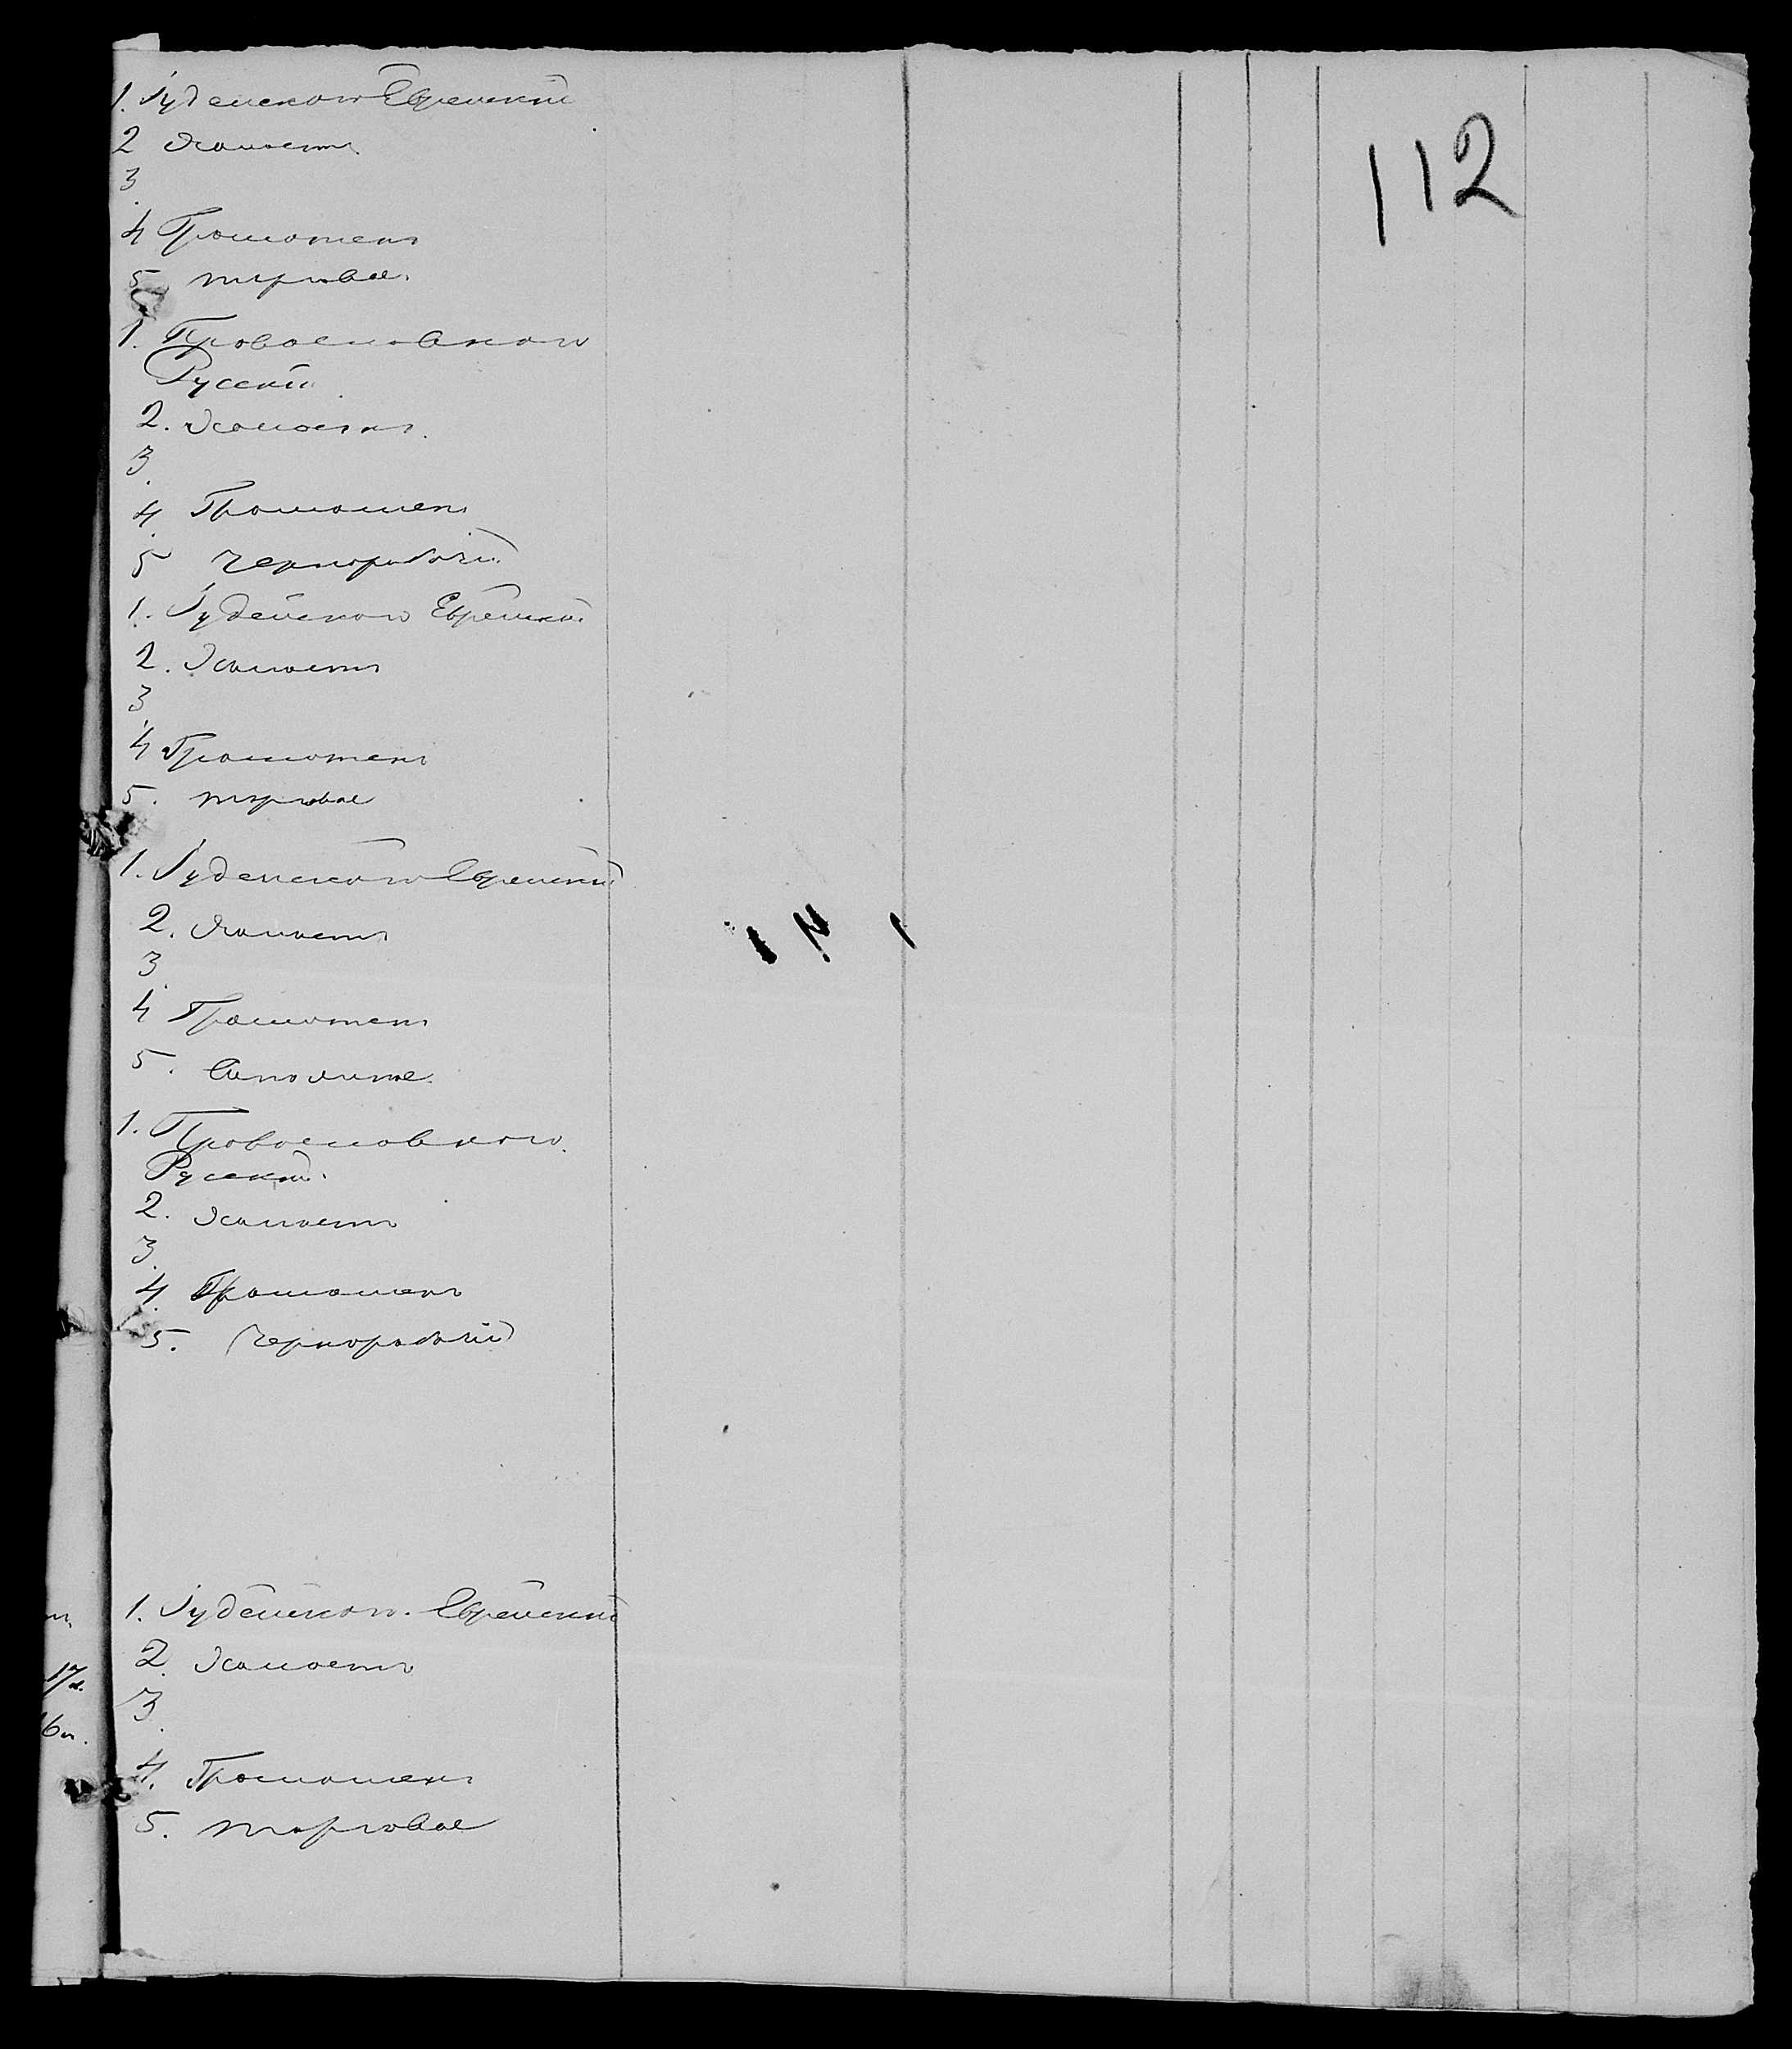 112
1. Іудейскаго Еврейскій
2 Холостъ.
3
4 Грамотенъ
5 торговля.
1. Православнаго
Русскій
2. Холостъ.
3.
4 Грамотенъ
5 чернорабочій
1. Іудейскаго Еврейскій
2. Холостъ
3
4 Грамотенъ
5. торговля
1. Іудейскаго Еврейскій
2. Холостъ
3
4 Грамотенъ
5.
1. Православнаго.
Русскій.
2. Холостъ
3.
4. Грамотенъ
5. чернорабочій
1. Іудейскаго. Еврейскій
2. Холостъ
3.
4. Грамотенъ
5. торговля